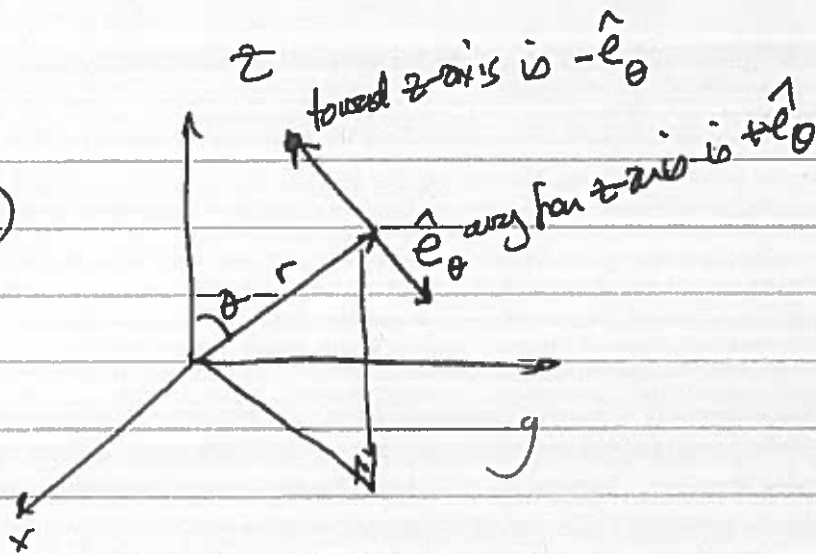 z
toward z-axis is -ê_θ
ê_θ away from z-axis is +ê_θ
θ
r
y
x